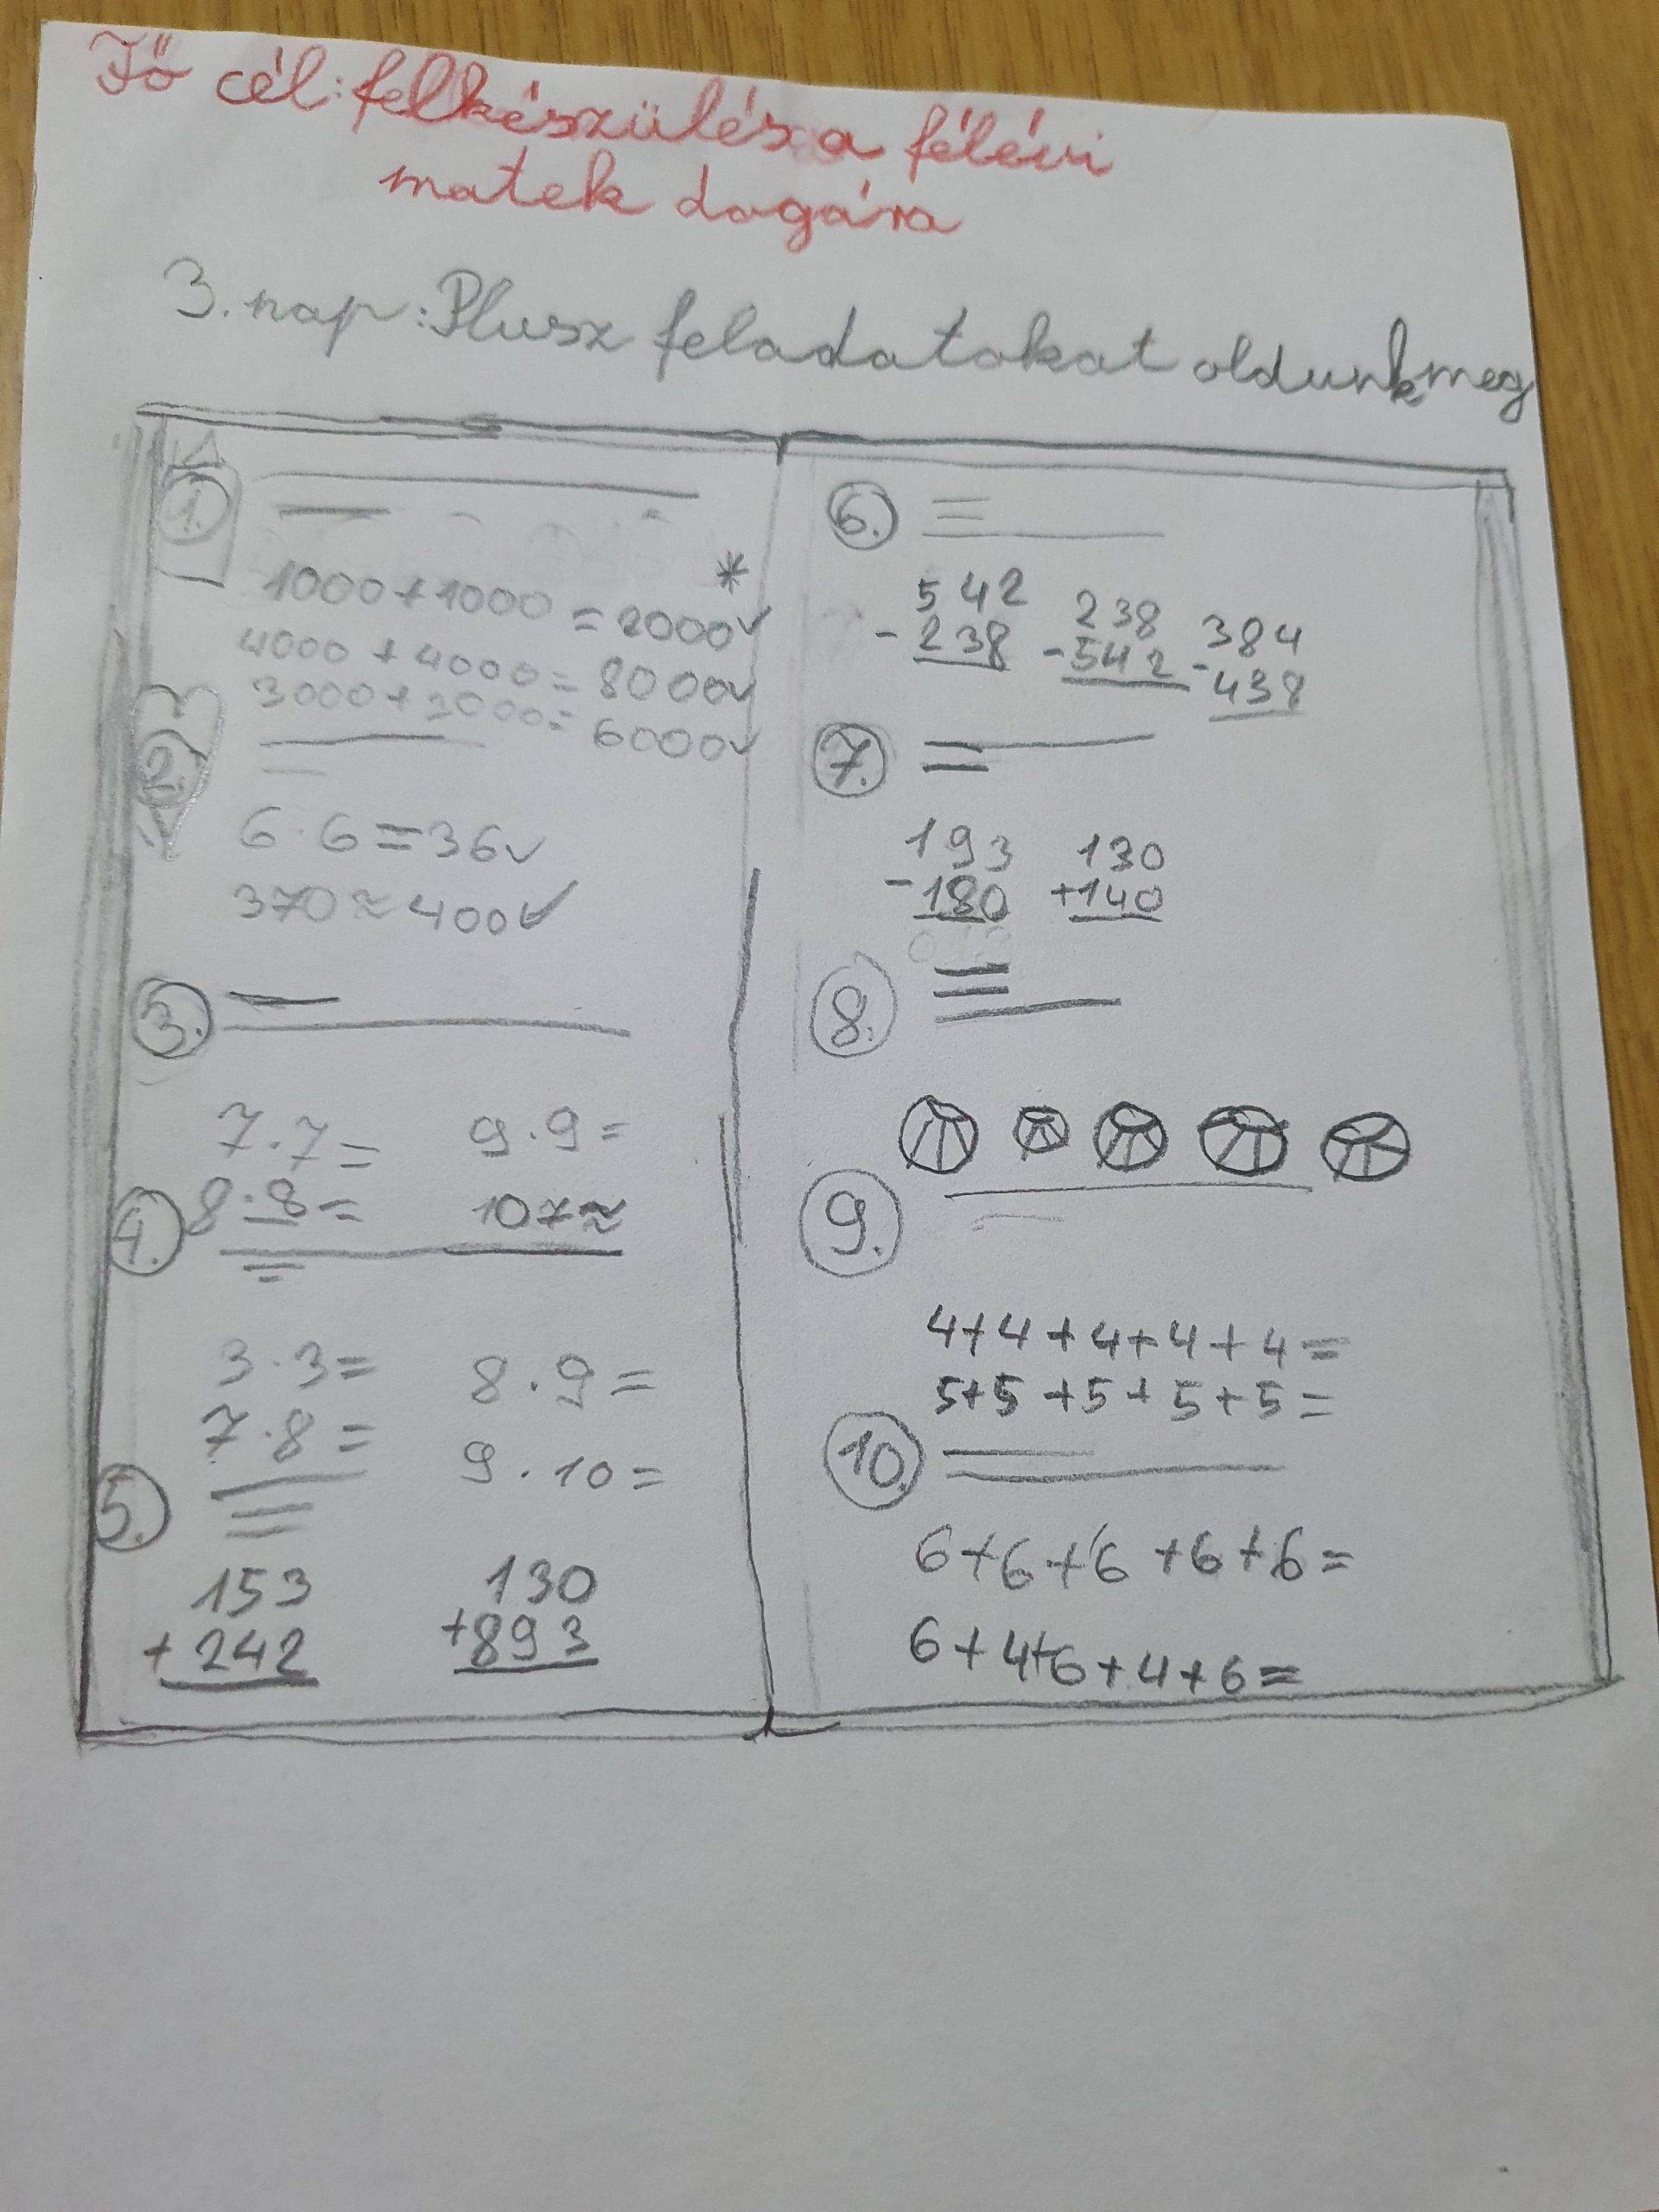 Fő cél: felkészülés a félévi
matek dogára
3. nap: Plusz feladatokat oldunk meg
1.
*
1000+1000=2000✓
4000+4000=8000✓
3000+3000=6000✓
2.
6·6=36✓
370≈400✓
3.
7·7= 9·9=
8·8= 107≈
4.
3·3= 8·9=
7·8= 9·10=
5.
153 130
+242 +893
6.
542 238 384
-238 -542 -438
7.
193 130
-180 +140
8.
9.
4+4+4+4+4=
5+5+5+5+5=
10.
6+6+6+6+6=
6+4+6+4+6=